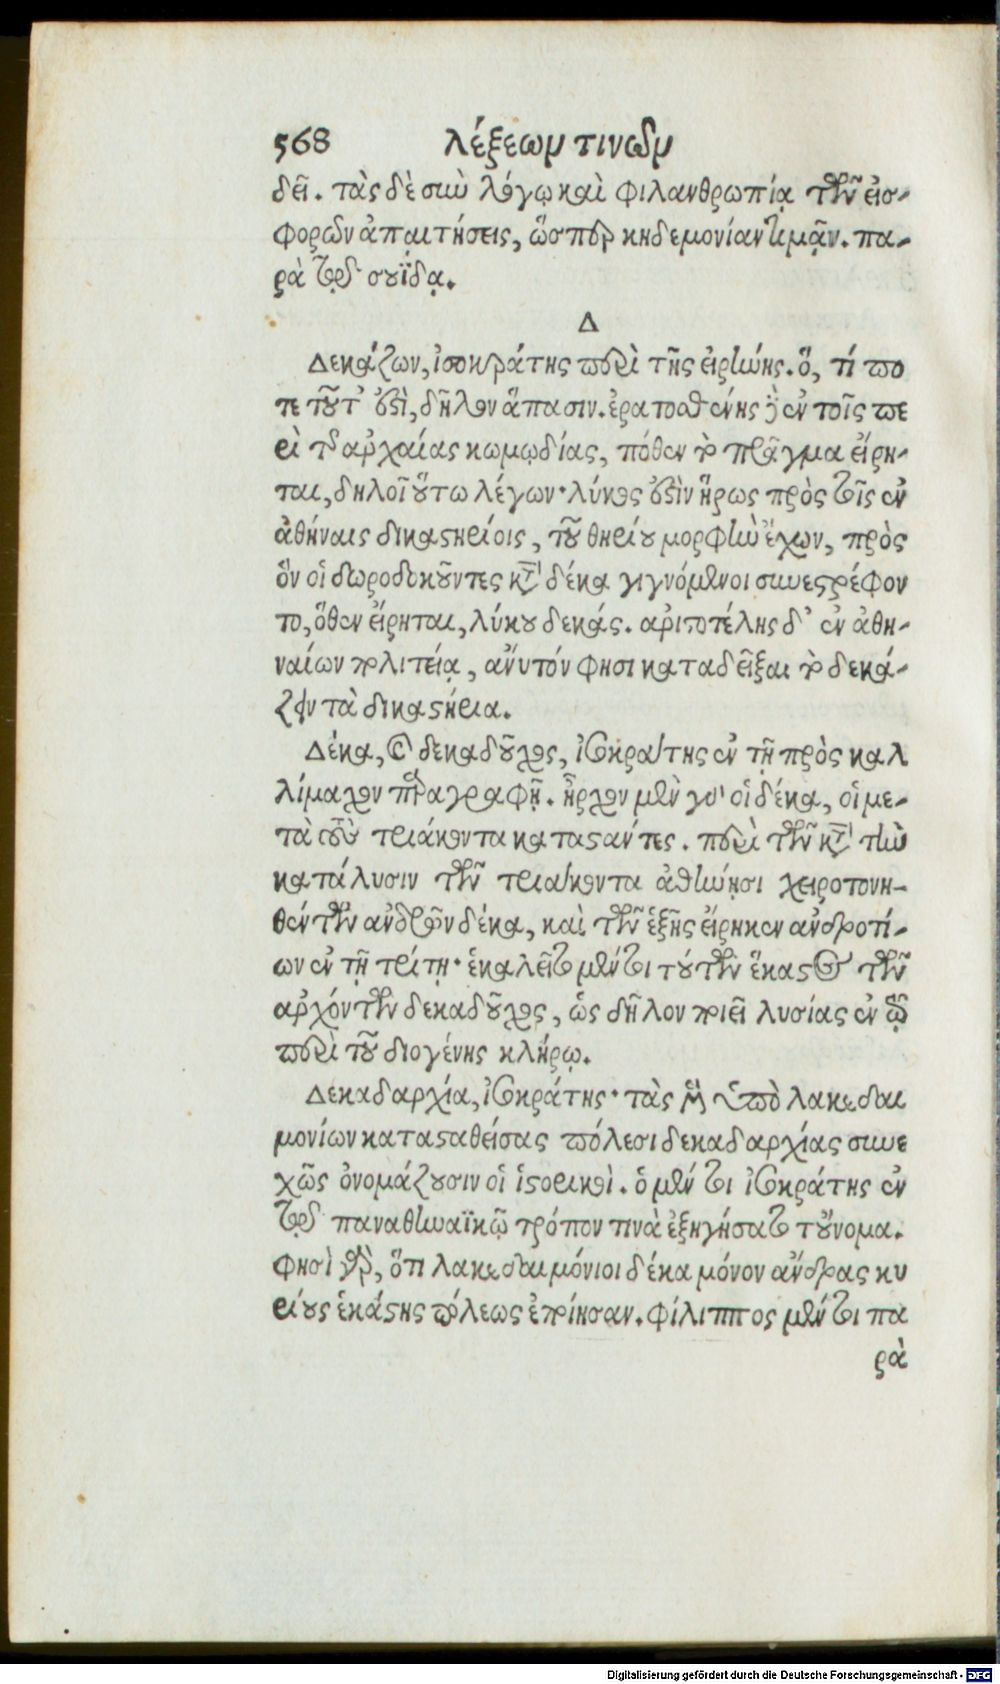 568 λέξεων τινῶν
δεῖ. τὰς δὲ σὺν λόγῳ καὶ φιλανθρωπίᾳ τῶν εἰσ-
φορῶν ἀπαιτήσεις, ὥσπερ κηδεμονίαν τιμᾶν. πα-
ρὰ τῷ σουΐδᾳ.
Δ
Δεκάζων, ἰσοκράτης περὶ τῆς εἰρήνης. ὅ, τί πο
τε τοῦτ' ἐστὶ, δῆλον ἅπασιν. ἐρατοσθένης δὲ ἐν τοῖς πε
ρὶ τῆς ἀρχαίας κωμῳδίας, πόθεν τὸ πρᾶγμα εἴρη-
ται, δηλοῖ οὕτω λέγων· λύκος ἐστὶν ἥρως πρὸς τοῖς ἐν
ἀθήναις δικαστηρίοις, τοῦ θηρίου μορφὴν ἔχων, πρὸς
ὃν οἱ δωροδοκοῦντες κατὰ δέκα γιγνόμενοι συνεστρέφον
το, ὅθεν εἴρηται, λύκου δεκάς. ἀριστοτέλης δ' ἐν ἀθη-
ναίων πολιτείᾳ, ἄνυτόν φησι καταδεῖξαι τὸ δεκά-
ζειν τὰ δικαστήρια.
Δέκα, καὶ δεκαδοῦχος, ἰσοκράτης ἐν τῇ πρὸς καλ
λίμαχον παραγραφῇ. ἦρχον μὲν γὰρ οἱ δέκα, οἱ με-
τὰ τοὺς τριάκοντα καταστάντες. περὶ τῶν κατὰ τὴν
κατάλυσιν τῶν τριάκοντα ἀθήνησι χειροτονη-
θέντων ἀνδρῶν δέκα, καὶ τῶν ἑξῆς εἴρηκεν ἀνδροτί-
ων ἐν τῇ τρίτῃ· ἐκαλεῖτο μέντοι τούτων ἕκαστος τῶν
ἀρχόντων δεκαδοῦχος, ὡς δῆλον ποιεῖ λυσίας ἐν τῷ
περὶ τοῦ διογένης κλήρῳ.
Δεκαδαρχία, ἰσοκράτης· τὰς μὲν ὑπὸ λακεδαι
μονίων κατασταθείσας πόλεσι δεκαδαρχίας συνε
χῶς ὀνομάζουσιν οἱ ἱστορικοὶ. ὁ μέντοι ἰσοκράτης ἐν
τῷ παναθηναϊκῷ τρόπον τινὰ ἐξηγήσατο τοὔνομα.
φησὶ γὰρ, ὅτι λακεδαιμόνιοι δέκα μόνον ἄνδρας κυ
ρίους ἑκάστης πόλεως ἐποίησαν. φίλιππος μέντοι πα
ρὰ
Digitalisierung gefördert durch die Deutsche Forschungsgemeinschaft - DFG